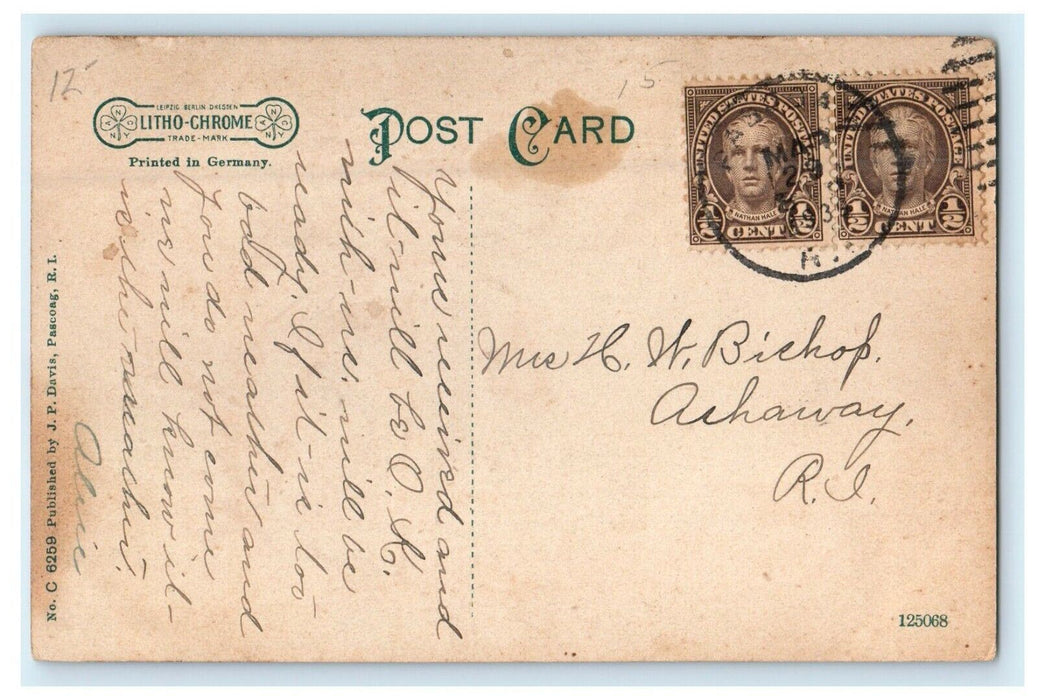 12
15
LEIPZIG BERLIN DRESDEN
LITHO-CHROME
TRADE-MARK
Printed in Germany.
POST CARD
UNITED STATES POSTAGE
NATHAN HALE
½ CENT ½
UNITED STATES POSTAGE
NATHAN HALE
½ CENT ½
MAR
Yours received and
it will be O.K.
with me. will be
ready. If it is too
bad weather and
you do not come
we will know it
is the weather.
Alice
Mrs H. W. Bishop.
Ashaway,
R.I.
No. C 6259 Published by J. P. Davis, Pascoag, R. I.
125068